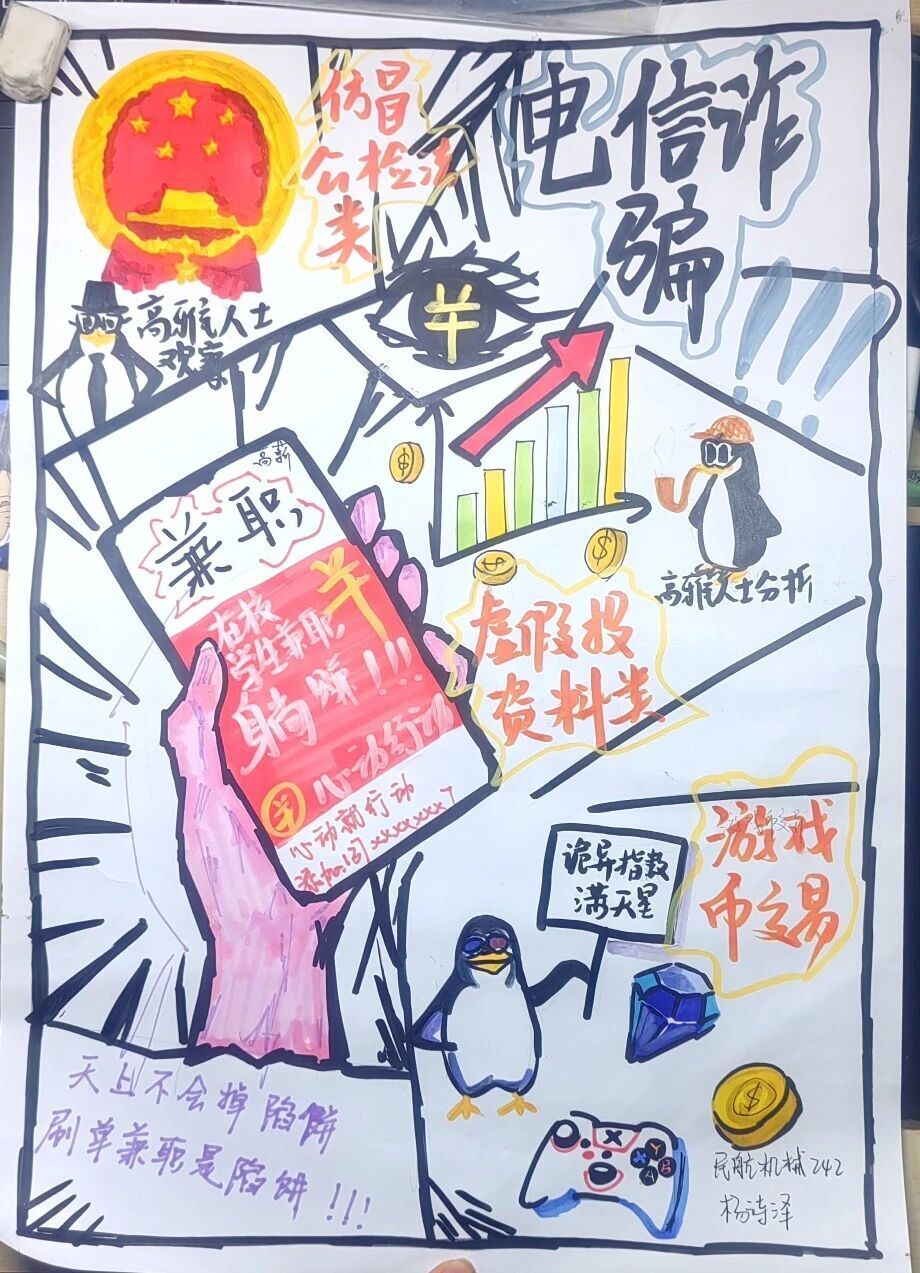 仿冒
公检法
类
电信诈
骗
!!!
高雅人士
观察
高薪
兼职
在校
学生兼职
躺赚!!!
心动行动
心动就行动
添加:@xxxxxxx7
高雅人士分析
虚假投
资料类
诡异指数
满天星
游戏
币交易
天上不会掉陷饼
刷单兼职是陷饼!!!
X
Y
X
B
A
民航机械242
杨诗泽